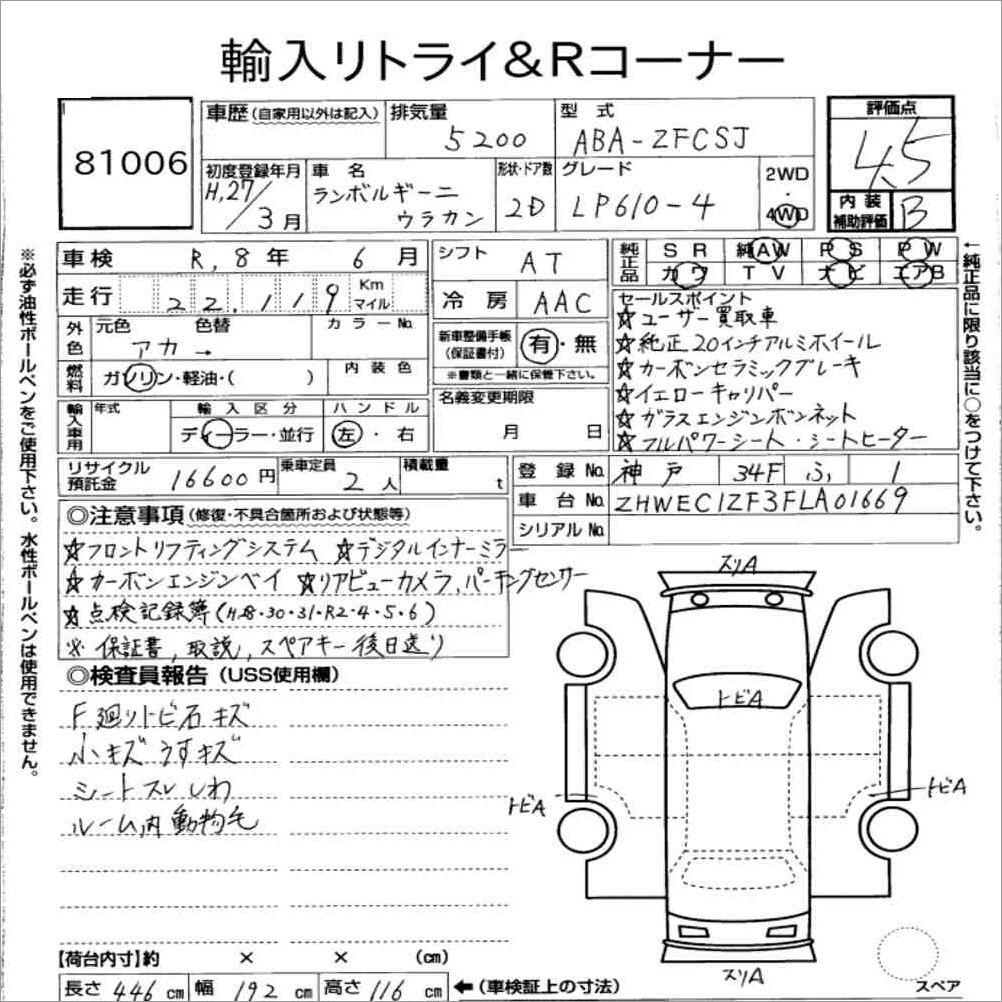 輸入リトライ&Rコーナー
81006
車歴(自家用以外は記入)
排気量
5200
型式
ABA-ZFCSJ
評価点
4.5
初度登録年月
H,27/3月
車名
ランボルギーニ
ウラカン
形状・ドア数
2D
グレード
LP610-4
2WD
・
4WD
内装
補助評価
B
車検 R,8年 6月
シフト AT
純正品
SR 純AW PS PW
カワ TV ナビ エアB
走行 22,119 Km
マイル
冷房 AAC
外色
元色 色替
アカ→
カラーNo.
新車整備手帳
(保証書付)
有・無
※書類と一緒に保管下さい。
燃料
ガソリン・軽油・( )
内装色
名義変更期限
月 日
輸入車用
年式
輸入区分
ディーラー・並行
ハンドル
左・右
セールスポイント
☆ユーザー買取車
☆純正20インチアルミホイール
☆カーボンセラミックブレーキ
☆イエローキャリパー
☆ガラスエンジンボンネット
☆フルパワーシート・シートヒーター
リサイクル
預託金
16600円
乗車定員
2人
積載量
t
登録No. 神戸 34F ふ 1
車台No. ZHWEC1ZF3FLA01669
シリアルNo.
◎注意事項(修復・不具合箇所および状態等)
☆フロントリフティングシステム ☆デジタルインナーミラー
☆カーボンエンジンベイ ☆リアビューカメラ,パーキングセンサー
☆点検記録簿(H28・30・31・R2・4・5・6)
※保証書,取説,スペアキー後日送り
◎検査員報告(USS使用欄)
F廻りトビ石キズ
小キズ うすキズ
シートスレ しわ
ルーム内動物毛
スリA
トビA
トビA
トビA
スリA
スペア
【荷台内寸】約 × × (cm)
長さ 446 cm 幅 192 cm 高さ 116 cm ←(車検証上の寸法)
※必ず油性ボールペンをご使用下さい。水性ボールペンは使用できません。
←純正品に限り該当に○をつけて下さい。